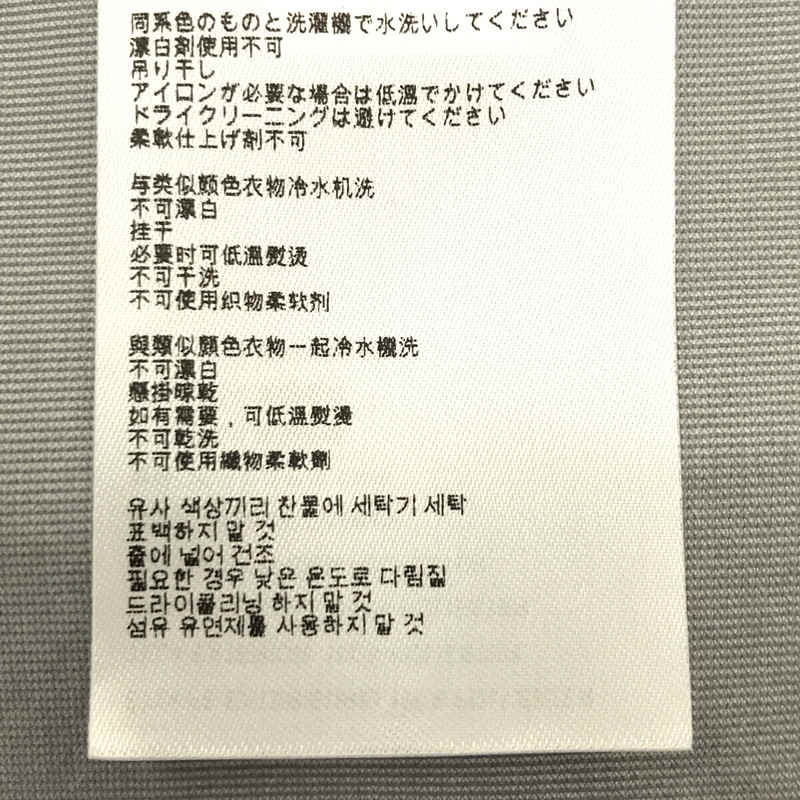 同系色のものと洗濯機で水洗いしてください
漂白剤使用不可
吊り干し
アイロンが必要な場合は低温でかけてください
ドライクリーニングは避けてください
柔軟仕上げ剤不可
与类似颜色衣物冷水机洗
不可漂白
挂干
必要时可低温熨烫
不可干洗
不可使用织物柔软剂
與類似顏色衣物一起冷水機洗
不可漂白
懸掛晾乾
如有需要，可低溫熨燙
不可乾洗
不可使用織物柔軟劑
유사 색상끼리 찬물에 세탁기 세탁
표백하지 말 것
줄에 널어 건조
필요한 경우 낮은 온도로 다림질
드라이클리닝 하지 말 것
섬유 유연제를 사용하지 말 것